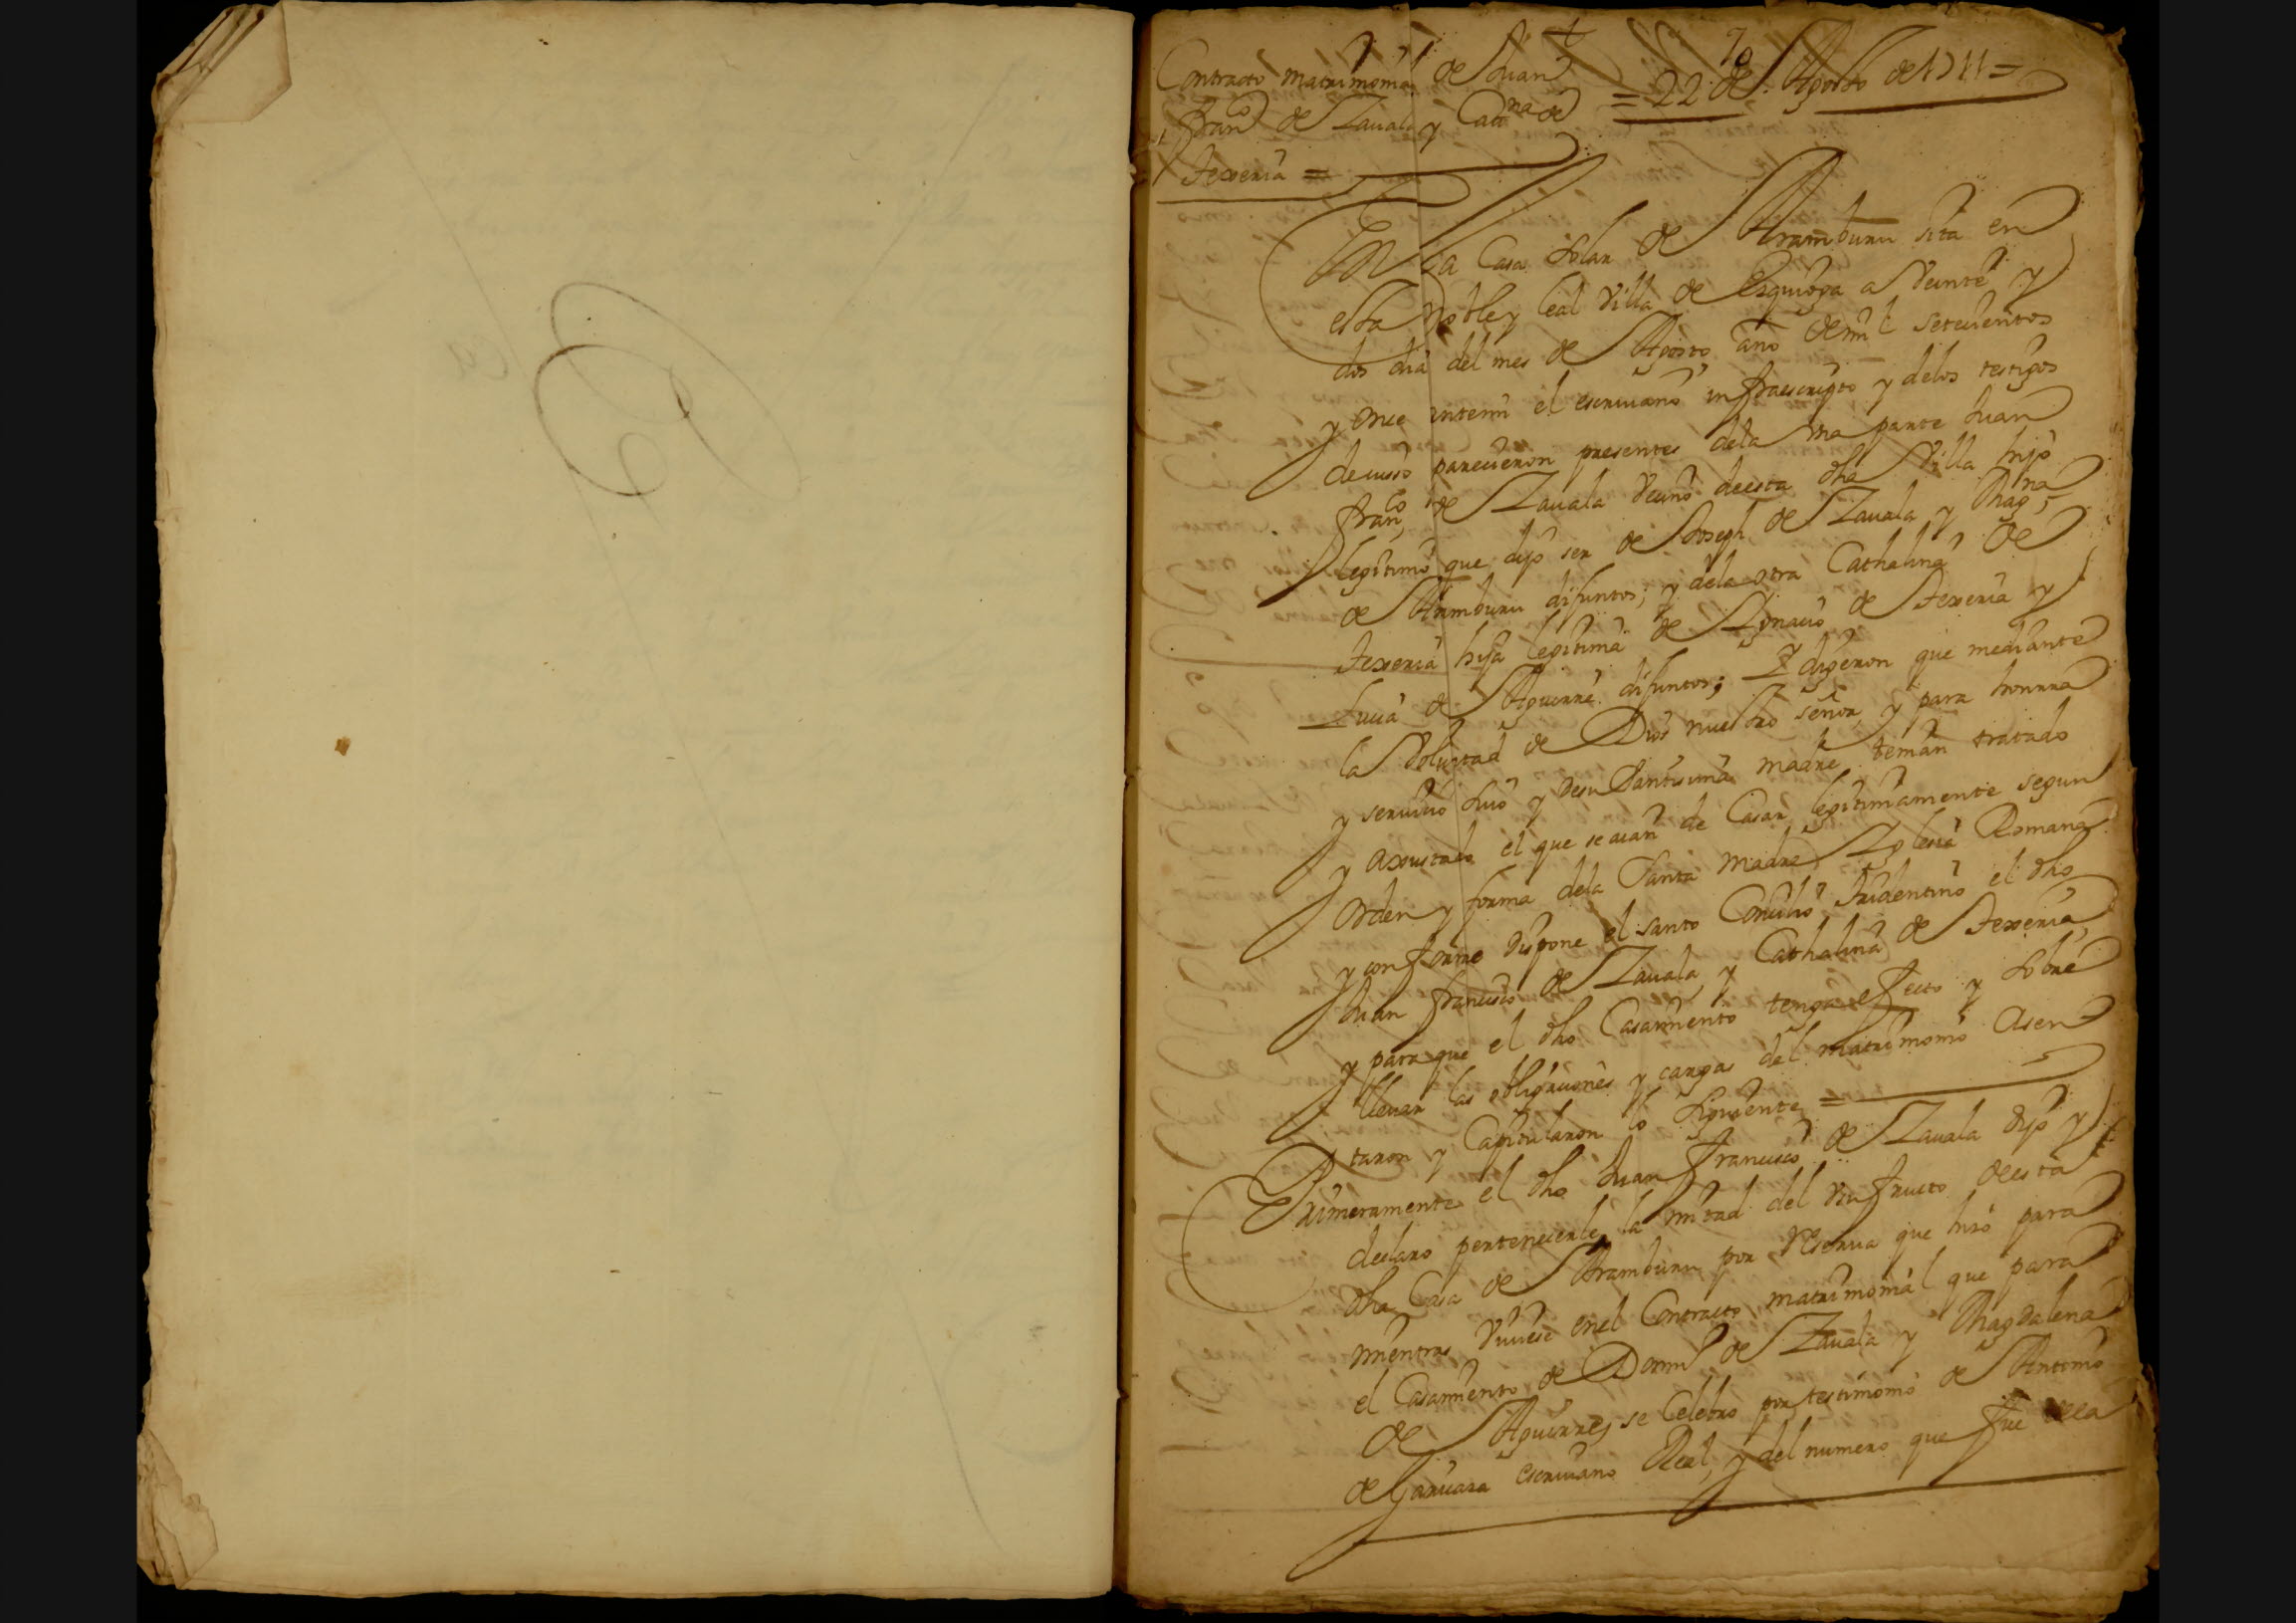 70
Contracto matrimonial de Juan = 22 de Agosto de 1711 =
Franco de Zauala y Catna de
Jexeria =
En la Casa Solar de Aramburu sita en
esta Noble y leal Villa de Ezquioga a Veinte y
dos dia del mes de Agosto año de mil setecientos
y once ante mi el escriuano infraescripto y delos testigos
de iusso parecieron presentes dela vna parte Juan
franco de Zauala Vecino de esta dha Villa hijo
legitimo que dijo ser de Joseph de Zauala y Magna
de Aramburu difuntos; y dela otra Cathalina de
Jexeria hija legitima de Ignacio de Jexeria y
Lucia de Aguirre difuntos; Y digeron que mediante
la Voluntad de Dios nuestro señor, y para honrra
y seruicio suio y de su Santisima madre tenian tratado
y axustado el que se aian de Casar legitimamente segun
orden y forma dela Santa Madre Iglesia Romana
y conforme dispone el santo Concilio Tridentino el dho
Juan francisco de Zauala, y Cathalina de Jexeria,
y para que el dho Casamiento tenga efecto y sobre
lleuar las obligaciones y cargas del matrimonio Asen
taron y Capitularon lo siguiente =
Primeramente el dho Juan Francisco de Zauala dijo y
declaro pertenecerle la mitad del vsufructo de esta
dha Casa de Aramburu por reserua que hizo para
mientras Viuiese en el Contracto matrimonial que para
el Casamiento de Domin de Zauala y Magdalena
de Aguirre, se Celebro por testimonio de Antonio
de escriuano Real, y del numero que fue